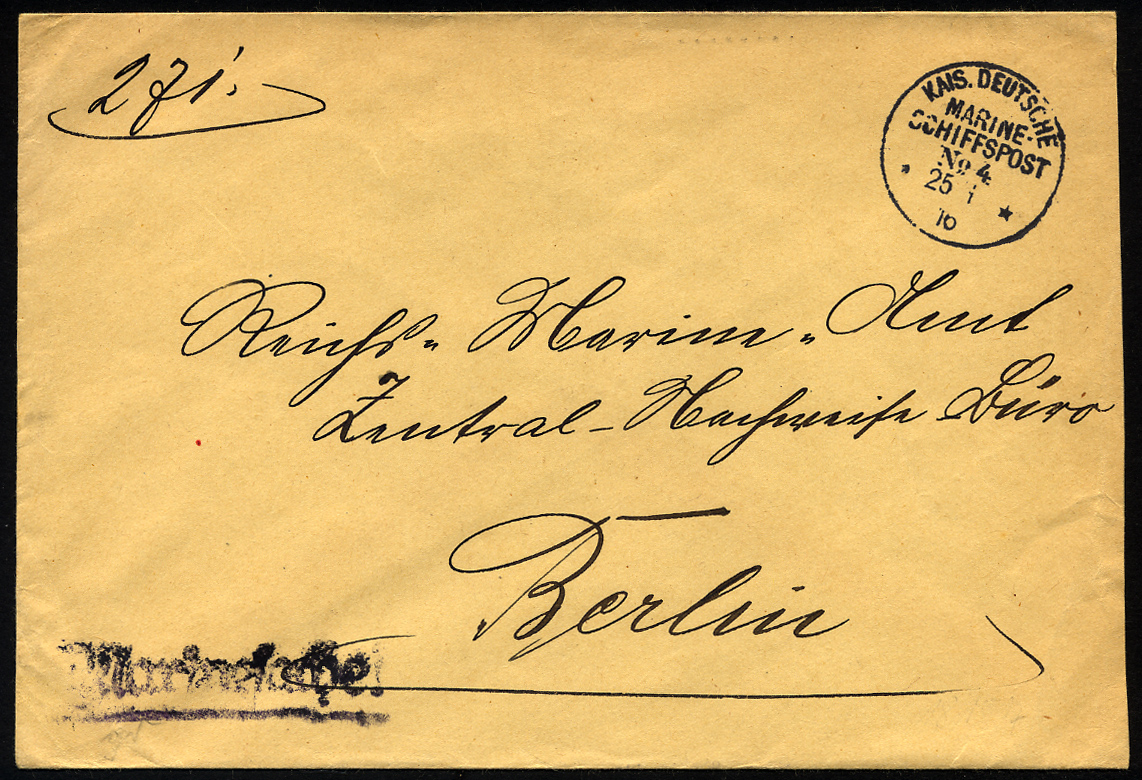 271.
KAIS. DEUTSCHE
MARINE-
SCHIFFSPOST
No 4
25
16
Reichs- Marine- Amt
Zentral-Nachweise Büro
Berlin
Marinesache!